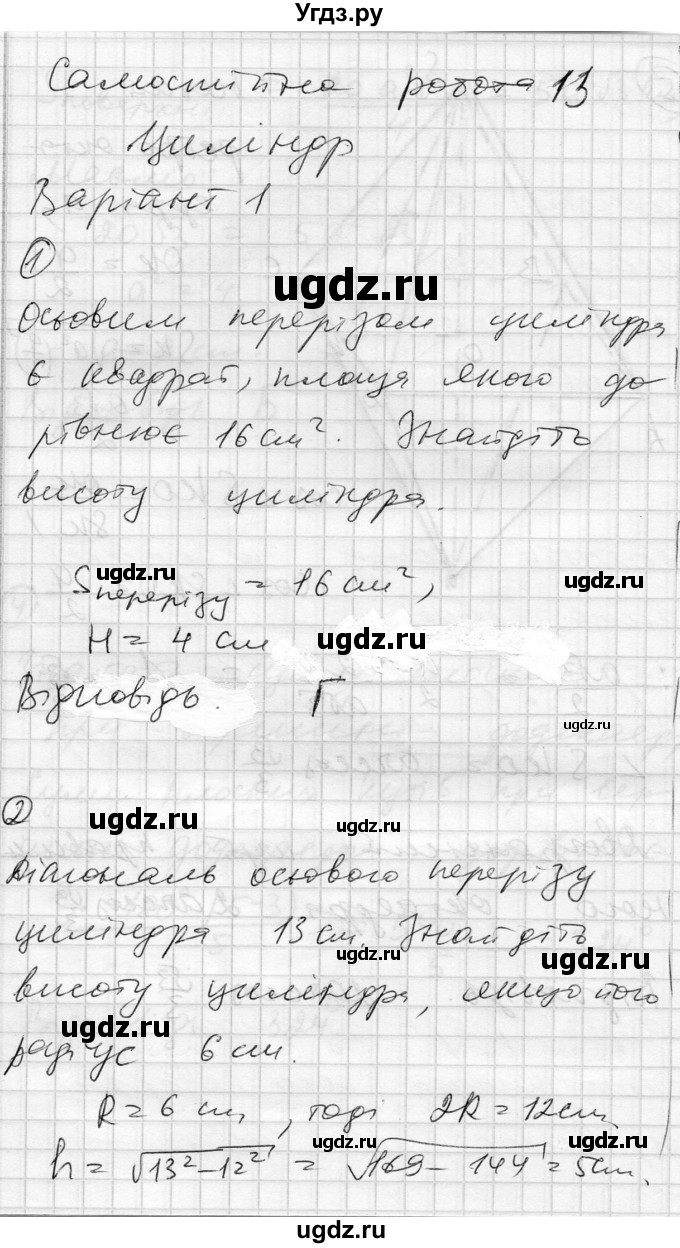 Угдз.ру
Самостійна робота 13
Циліндр
Варіант 1
1
ugdz.ru
Осьовим перерізом циліндра
є квадрат, площа якого до
рівнює 16 см². Знайдіть
висоту циліндра.
ugdz.ru ugdz.ru
Sперерізу = 16 см²,
H = 4 см ugdz.ru
Відповідь. Г
ugdz.ru
2
ugdz.ru ugdz.ru
Діагональ осьового перерізу
циліндра 13 см. Знайдіть
ugdz.ru ugdz.ru
висоту циліндра, якщо його
ugdz.ru
радіус 6 см.
R = 6 см, тоді 2R = 12 см,
ugdz.ru ugdz.ru
h = √13² - 12² = √169 - 144 = 5 см.
ugdz.ru